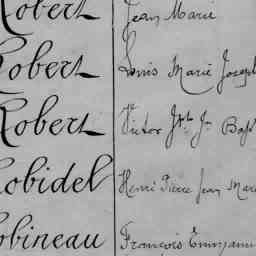 Robert Jean Marie
Robert Louis Marie Joseph
Robert Victor Jph Jn Bapt
Robidel Henri Pierre Jean Marie
Robineau François Emmanuel